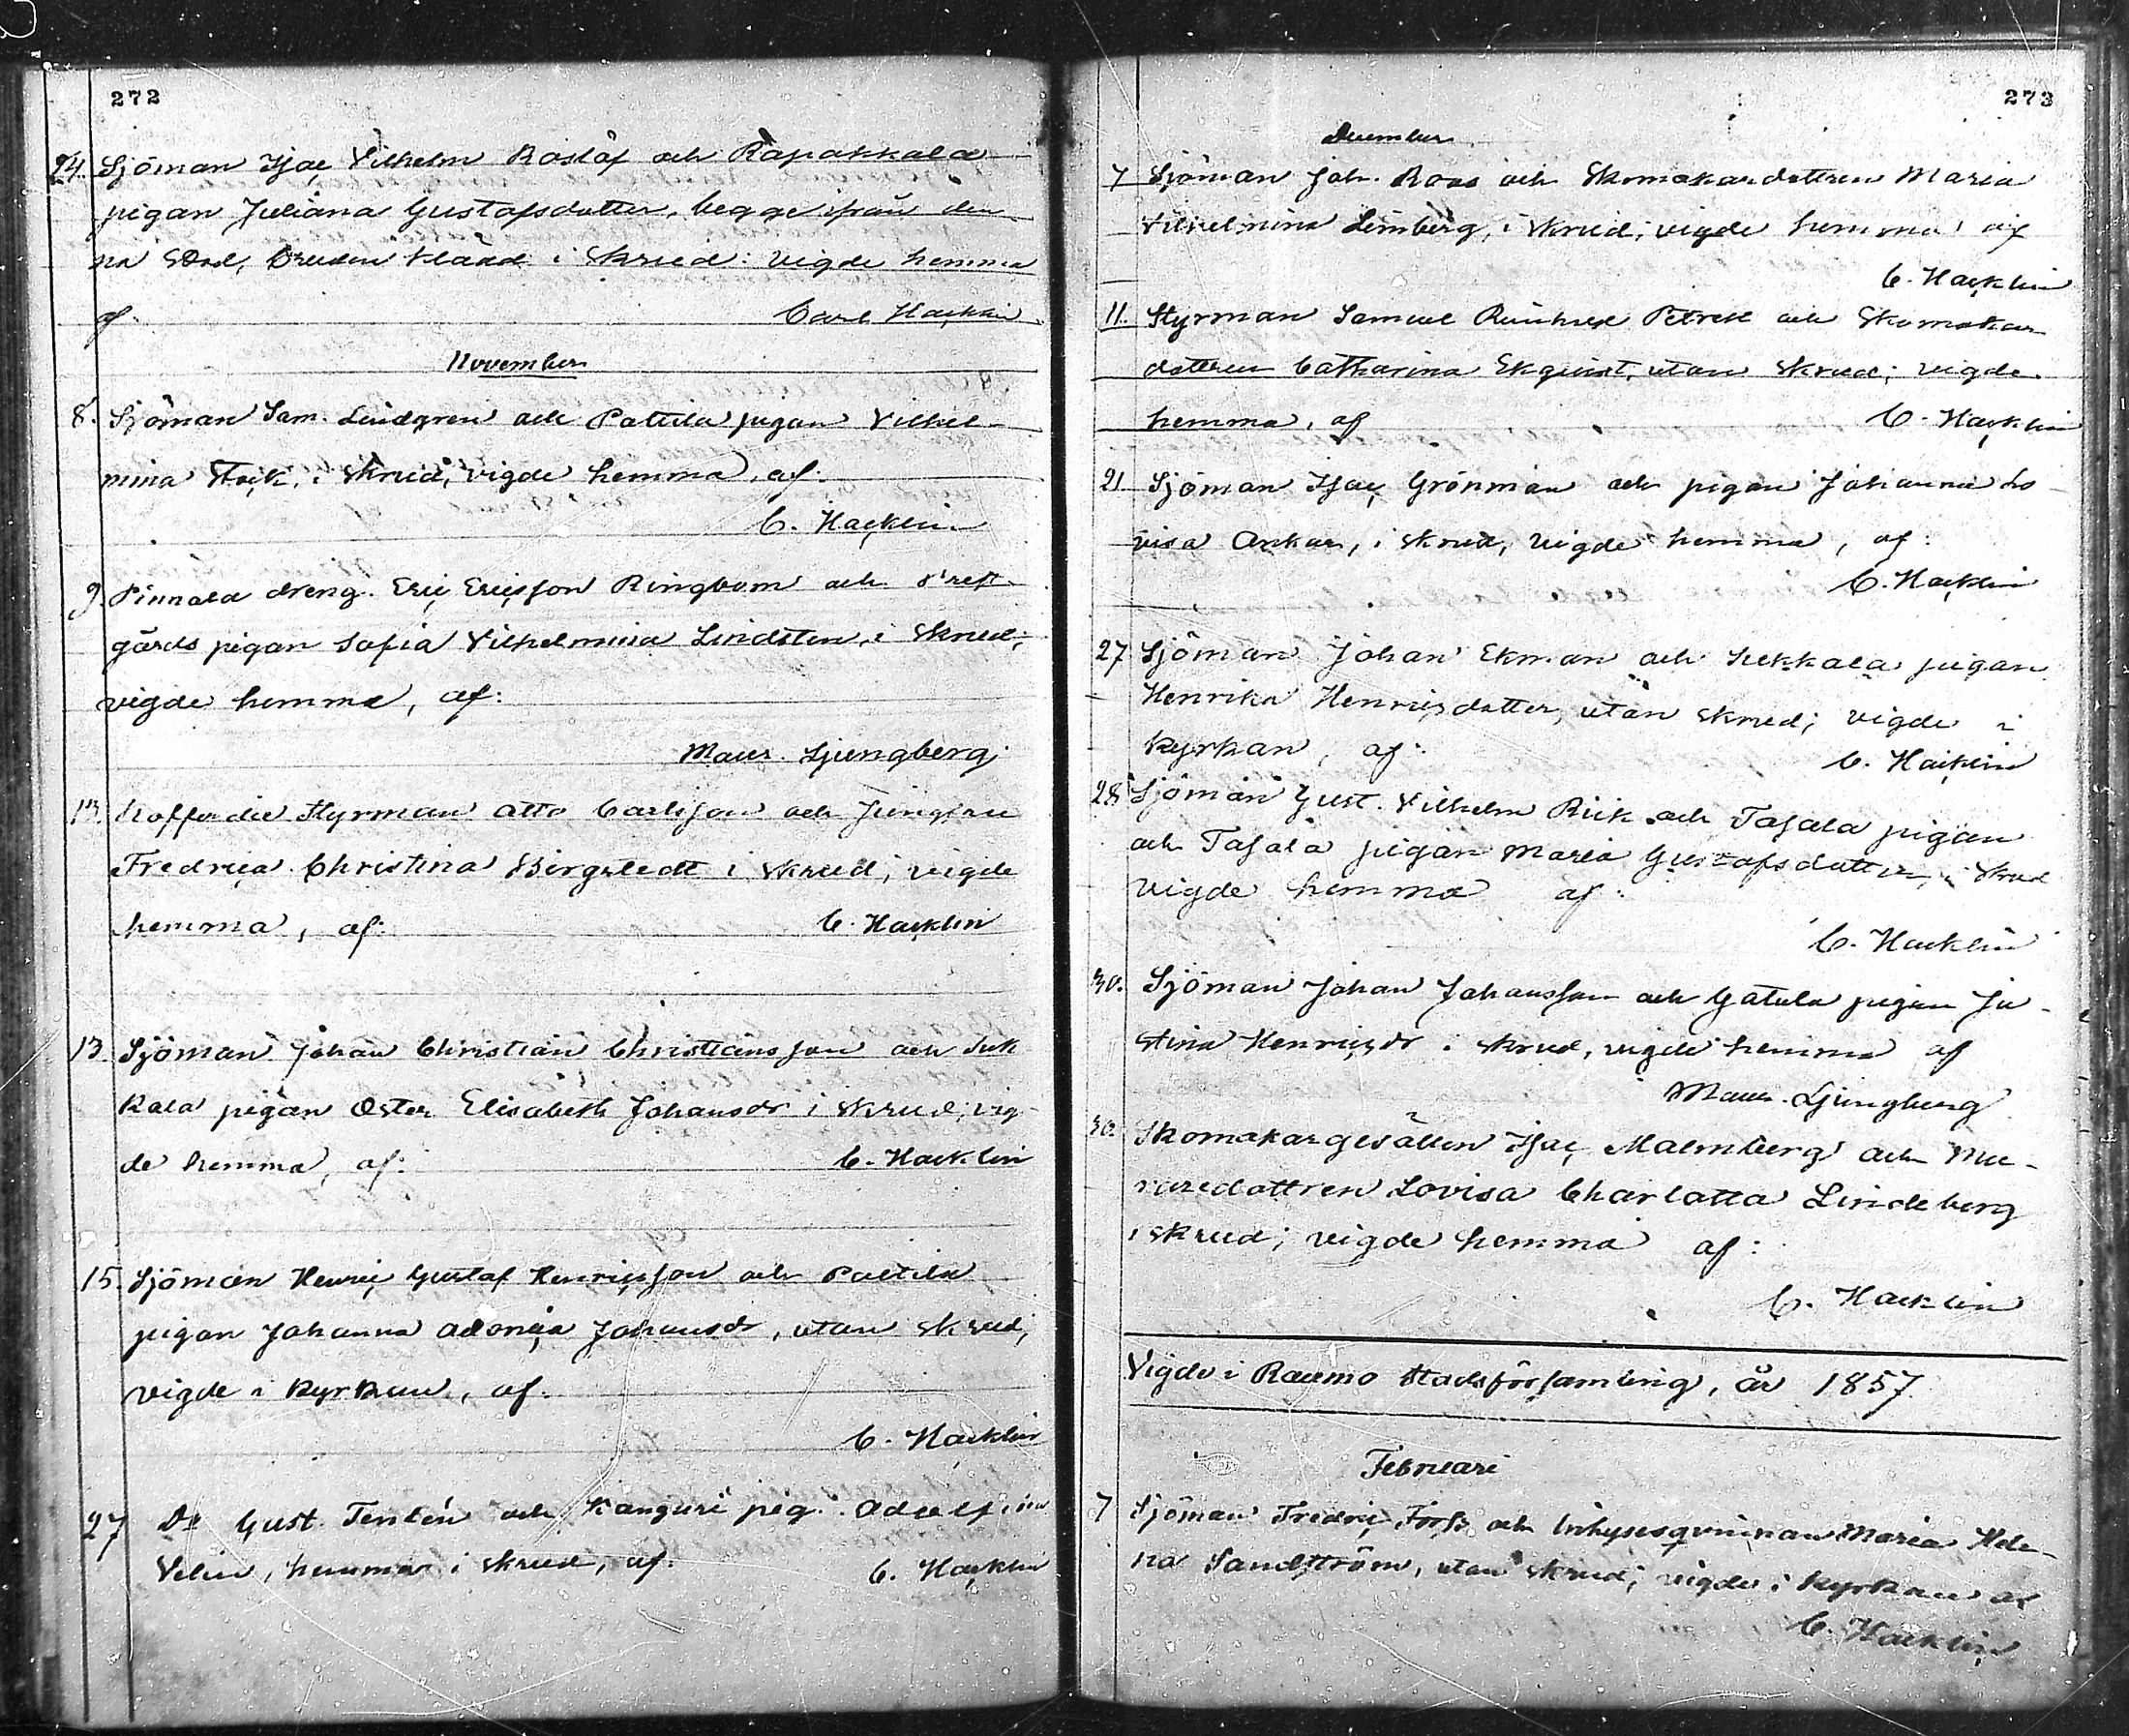 272
24. Sjöman Isac Vilhelm Roslöf och Rapakkala
pigan Juliana Gustafsdotter, begge ifrån den
na Stad, Bruden klädd i skrud: vigde hemma
af. Carl Hacklin
November
8. Sjöman Sam. Lindgren och Pattila pigan Vilhel-
mina Stock, i skrud, vigde hemma, af.
C. Hacklin
9. Pinnala dreng. Eric Ericsson Ringbom och
gårds pigan Sofia Vilhelmina Lindsten, i skrud;
vigde hemma, af:
Maur. Ljungberg
Kofferdie Styrman Otto Carlsson och Jungfru
Fredrica Christina Bergstedt i skrud; vigde
hemma, af: C. Hacklin
13. Sjöman Johan Christian Christiansson och Suk
kala pigan Ester Elisabeth Johansdr i skrud; vig-
de hemma, af: C. Hacklin
15. Sjöman Henric Gustaf Henricsson och Pattila
pigan Johanna Johansdr, utan skrud;
vigde i kyrkan, af.
C. Hacklin
27 Dr Gust. Tenlén och Kanguri pig. Adolfina
Velin, hemma i skrud, af. C. Hacklin
273
December
7 Sjöman Joh. Roos och Skomakaredottren Maria
Vilhelmina Limberg, i skrud; vigde hemma af
C. Hacklin
11. Styrman Samuel Petrell och Skomakar
dottren Catharina Ekqvist, utan skrud; vigde
hemma, af C. Hacklin
21 Sjöman Isac Grönman och pigan Johanna Lo-
visa Ankar, i skrud, vigde hemma, af:
C. Hacklin
27 Sjöman Johan Ekman och Sukkala pigan
Henrika Henricsdotter, utan skrud; vigde i
kyrkan, af: C. Hacklin
28 Sjöman Gust. Vilhelm Riik och Tasala pigan
och Tasala pigan Maria Gustafsdotter, i skrud
vigde hemma af:
C. Hacklin
30. Sjöman Johan Johansson och Gatula pigan Ju-
stina Henricsdr i skrud, vigde hemma af
Maur. Ljungberg
30. Skomakargesällen Isac Malmberg och Mu-
raredottren Lovisa Charlotta Lindeberg
i skrud; vigde hemma af:
C. Hacklin
Vigde i Raumo Stadsförsamling, år 1857.
Februari
7 Sjöman Fredric Forss och Inhysesqvinnan Maria Hele-
na Sandström, utan skrud; vigde i kyrkan af
C. Hacklin